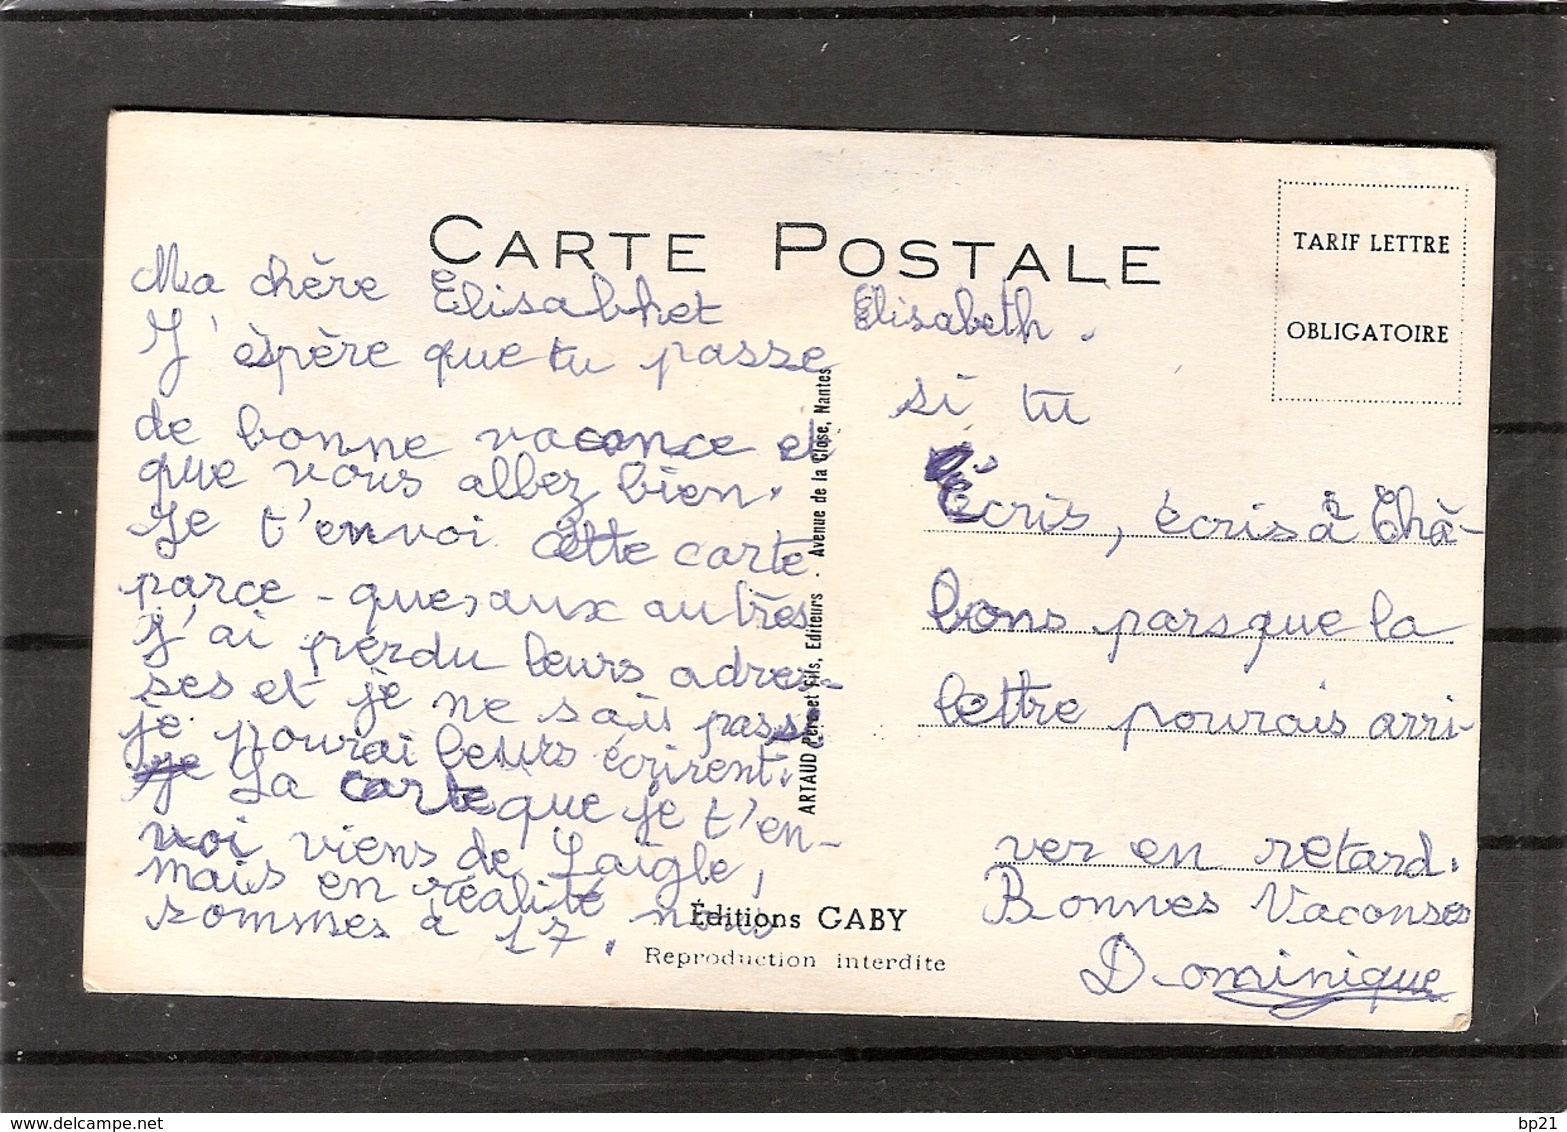 CARTE POSTALE
TARIF LETTRE
OBLIGATOIRE
Ma chère Elisabhet
J'éspère que tu passe
de bonne vacance et
que vous allez bien.
Je t'envoi cette carte
parce-que, aux autres
j'ai perdu leurs adres-
ses et je ne sais pas si
je pourai leurs écrirent.
La carte que je t'en-
voi viens de Laigle,
mais en réalité nous
sommes à 17.
Elisabeth.
si tu
écris, écris à Châ-
lons parsque la
lettre pourais arri-
ver en retard.
Bonnes Vaconses
Dominique
ARTAUD Père et Fils, Editeurs - Avenue de la Close, Nantes
Éditions GABY
Reproduction interdite
www.delcampe.net
bp21